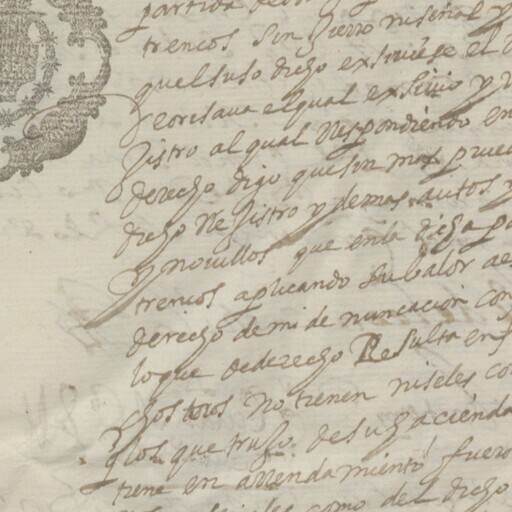 partida de
trencos sin fierro niseñal y
quel suso dicho exsiviese el
feoresava el qual exsivio y
Jistro al qual Respondiendo en
derecho digo que sin mas prue
dicho Rejistro y demas autos y
y novillos que en la dicha pa
trencos aplicando su balor a
derecho de mi denunciacion con
lo que de derecho Resulta en f
chos toros no tienen niseles co
y los que trujo de su hacienda
tiene en arrendamiento fuero
como del dicho